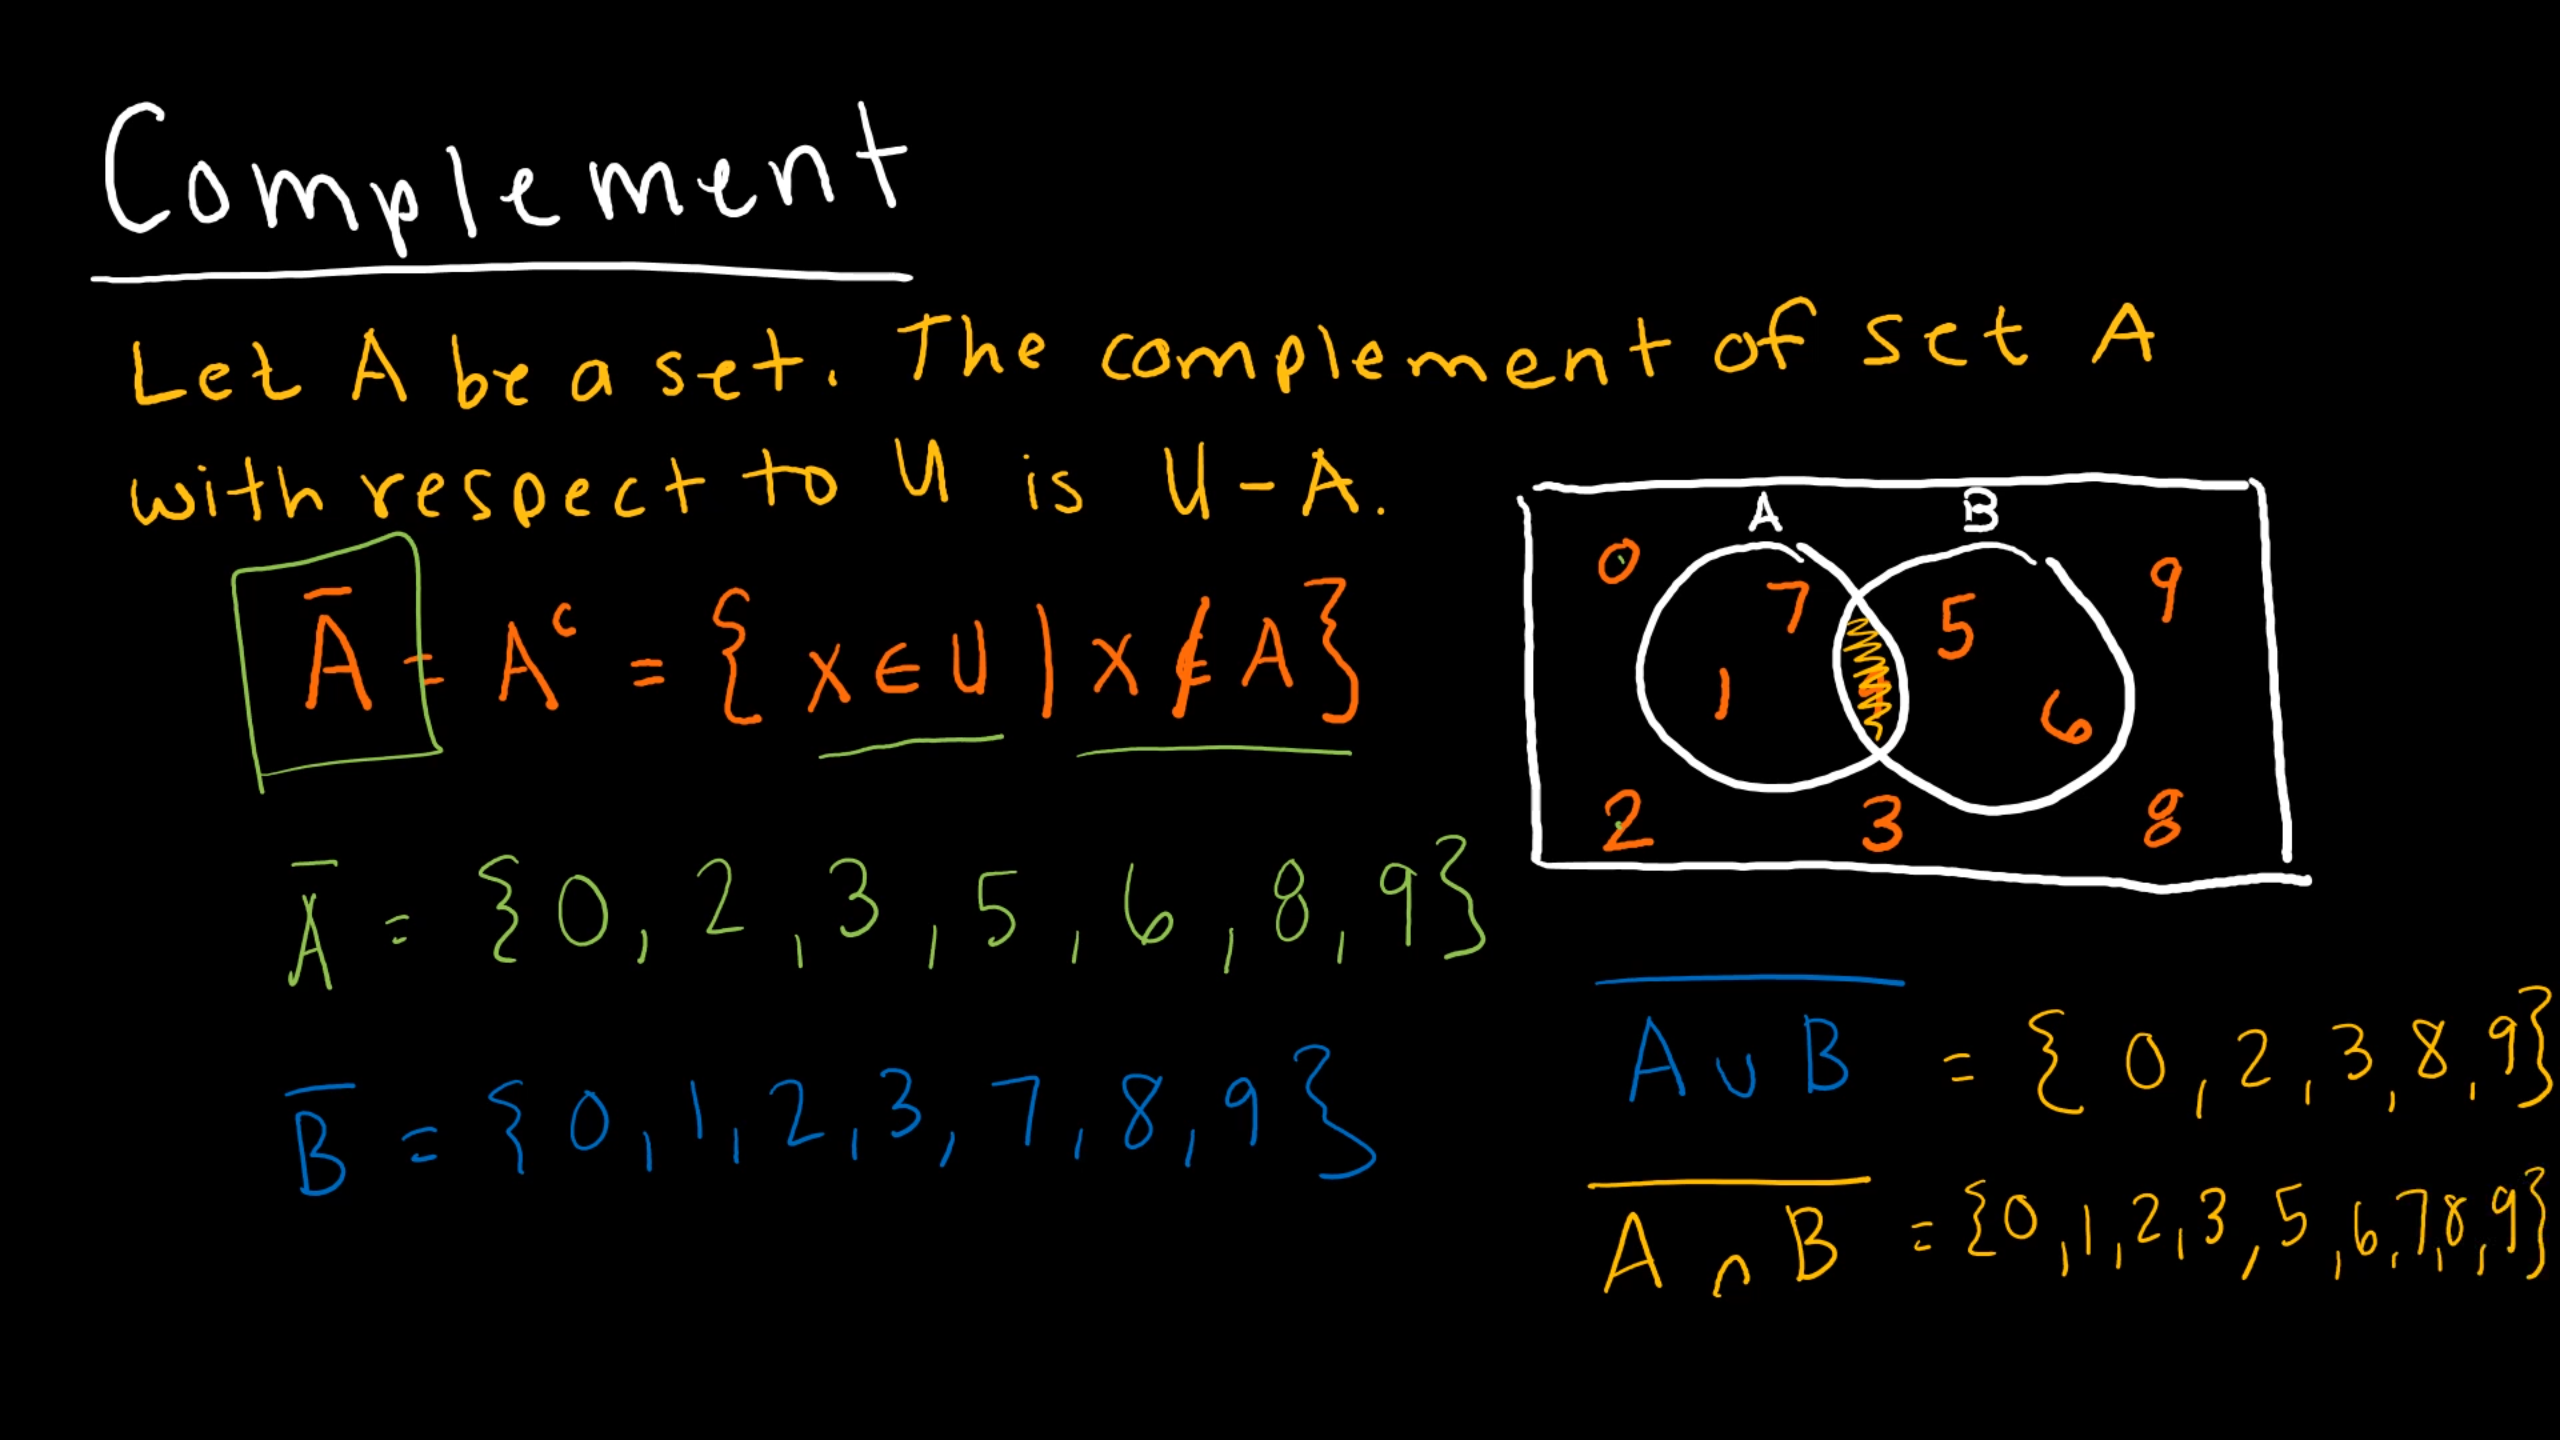 Complement
Let A be a set. The complement of set A
with respect to U is U - A.
A̅ = Aᶜ = { x ∈ U | x ∉ A }
A B
0 7 5 9
1 6
2 3 8
A̅ = {0, 2, 3, 5, 6, 8, 9}
B̅ = {0, 1, 2, 3, 7, 8, 9}
A̅ ̅∪̅ ̅B̅ = { 0, 2, 3, 8, 9}
A̅ ̅∩̅ ̅B̅ = {0, 1, 2, 3, 5, 6, 7, 8, 9}